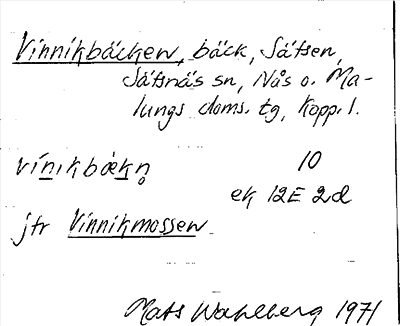 Vinnikbäcken, bäck, Säfsen,
Säfsnäs sn, Nås o. Ma-
lungs doms. tg, Kopp. l.
vinikbäkn̥ 10
ek 12E 2d
jfr Vinnikmossen
Mats Wahlberg 1971